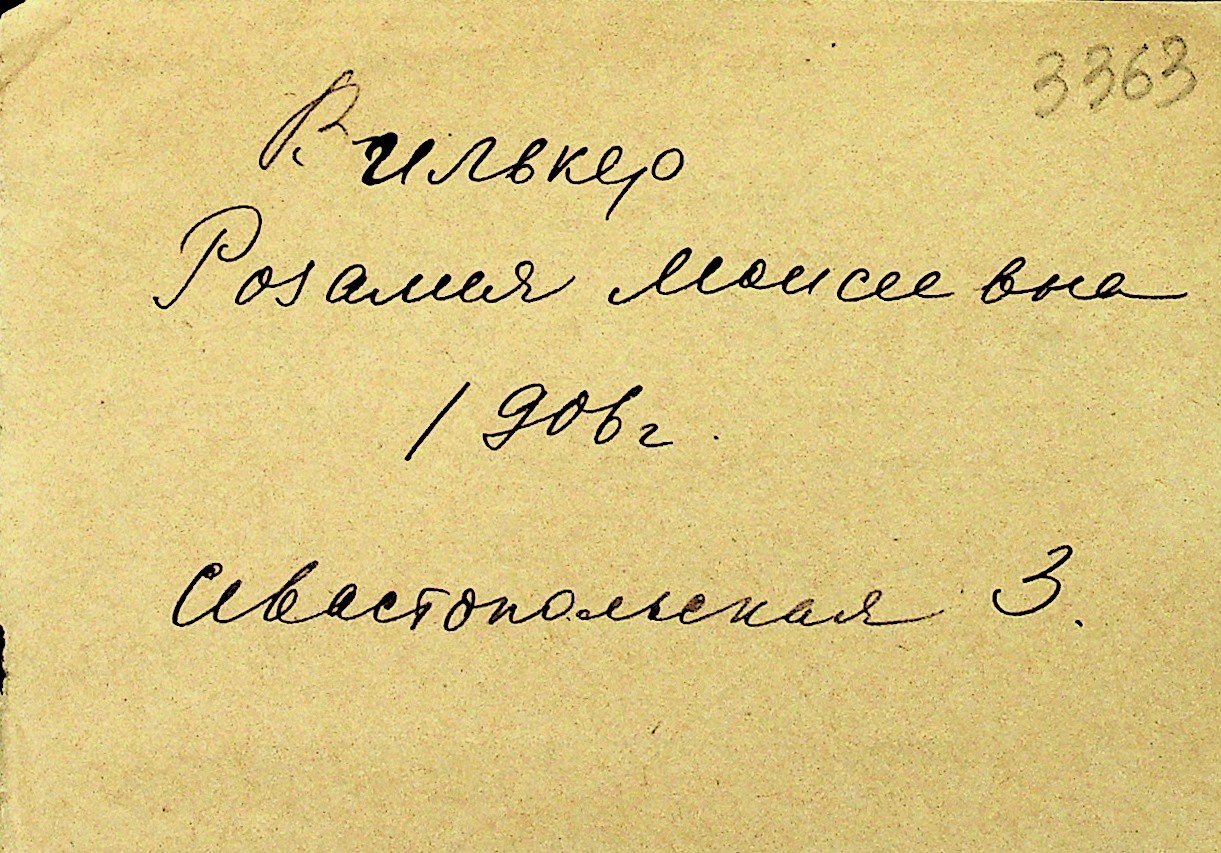 3363
Вилькер
Розалия Моисеевна
1906 г.
Севастопольская 3.